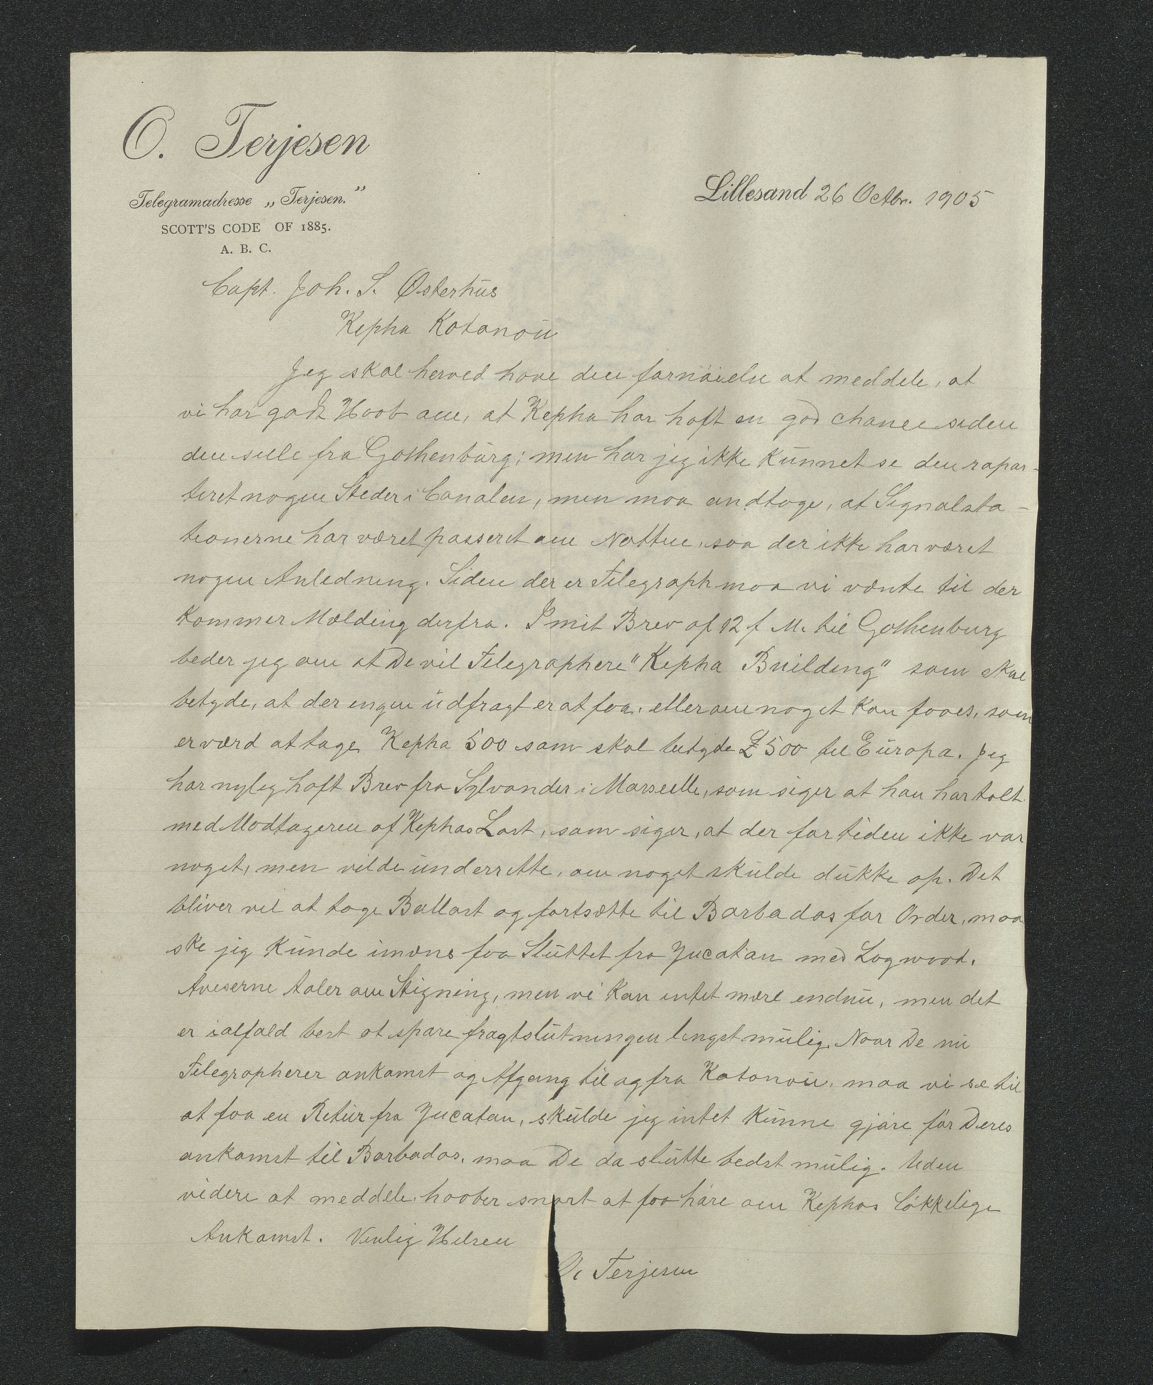 O. Terjesen
Telegramadresse „Terjesen."
SCOTT'S CODE OF 1885.
A. B. C.
Lillesand 26 Octbr. 1905
Capt. Joh. S. Østerhüs
Kepha Kotanoü
Jeg skal herved have den fornöielse at meddele, at
vi har godt Haab om, at Kepha har haft en god chance siden
den seile fra Gothenbürg; men har jeg ikke künnet se den rapor-
teret nogen Steder i Canalen, men maa andtage, at Signalsta-
tionerne har været passeret om Natten, saa der ikke har været
nogen Anledning. Siden der er Telegraph maa vi vænte til der
kommer Mælding derfra. I mit Brev af 12 f. M. til Gothenburg
beder jeg om at De vil Telegraphere "Kepha Building" som skal
betyde, at der ingen üdfragt er at faa, eller om noget kan faaes, som
er værd at tage Kepha 500 som skal betyde £500 til Eüropa. Jeg
har nylig haft Brev fra Sylvander i Marseille, som siger at han har talt
med Modtageren af Kephas Last, som siger, at der for tiden ikke var
noget, men vilde ünderrette, om noget skülde dükke op. Det
bliver vel at tage Ballast og fortsætte til Barbados for Order, maa
ske jeg künde imæns faa Slüttet fra Yucatan med Logwood.
Aviserne taler om Stigning, men vi kan intet mærk endnü, men det
er ialfald best at spare fragtslütningen lengst mülig. Naar De nu
Telegrapherer ankomst og Afgang til og fra Kotanoü, maa vi se til
at faa en Retür fra Yucatan, skülde jeg intet künne gjøre før Deres
ankomst til Barbados, maa De da slütte bedst mülig. Uden
videre at meddele haaber snart at faa høre om Kephas lökkelige
Ankomst. Venlig Hilsen
O. Terjesen